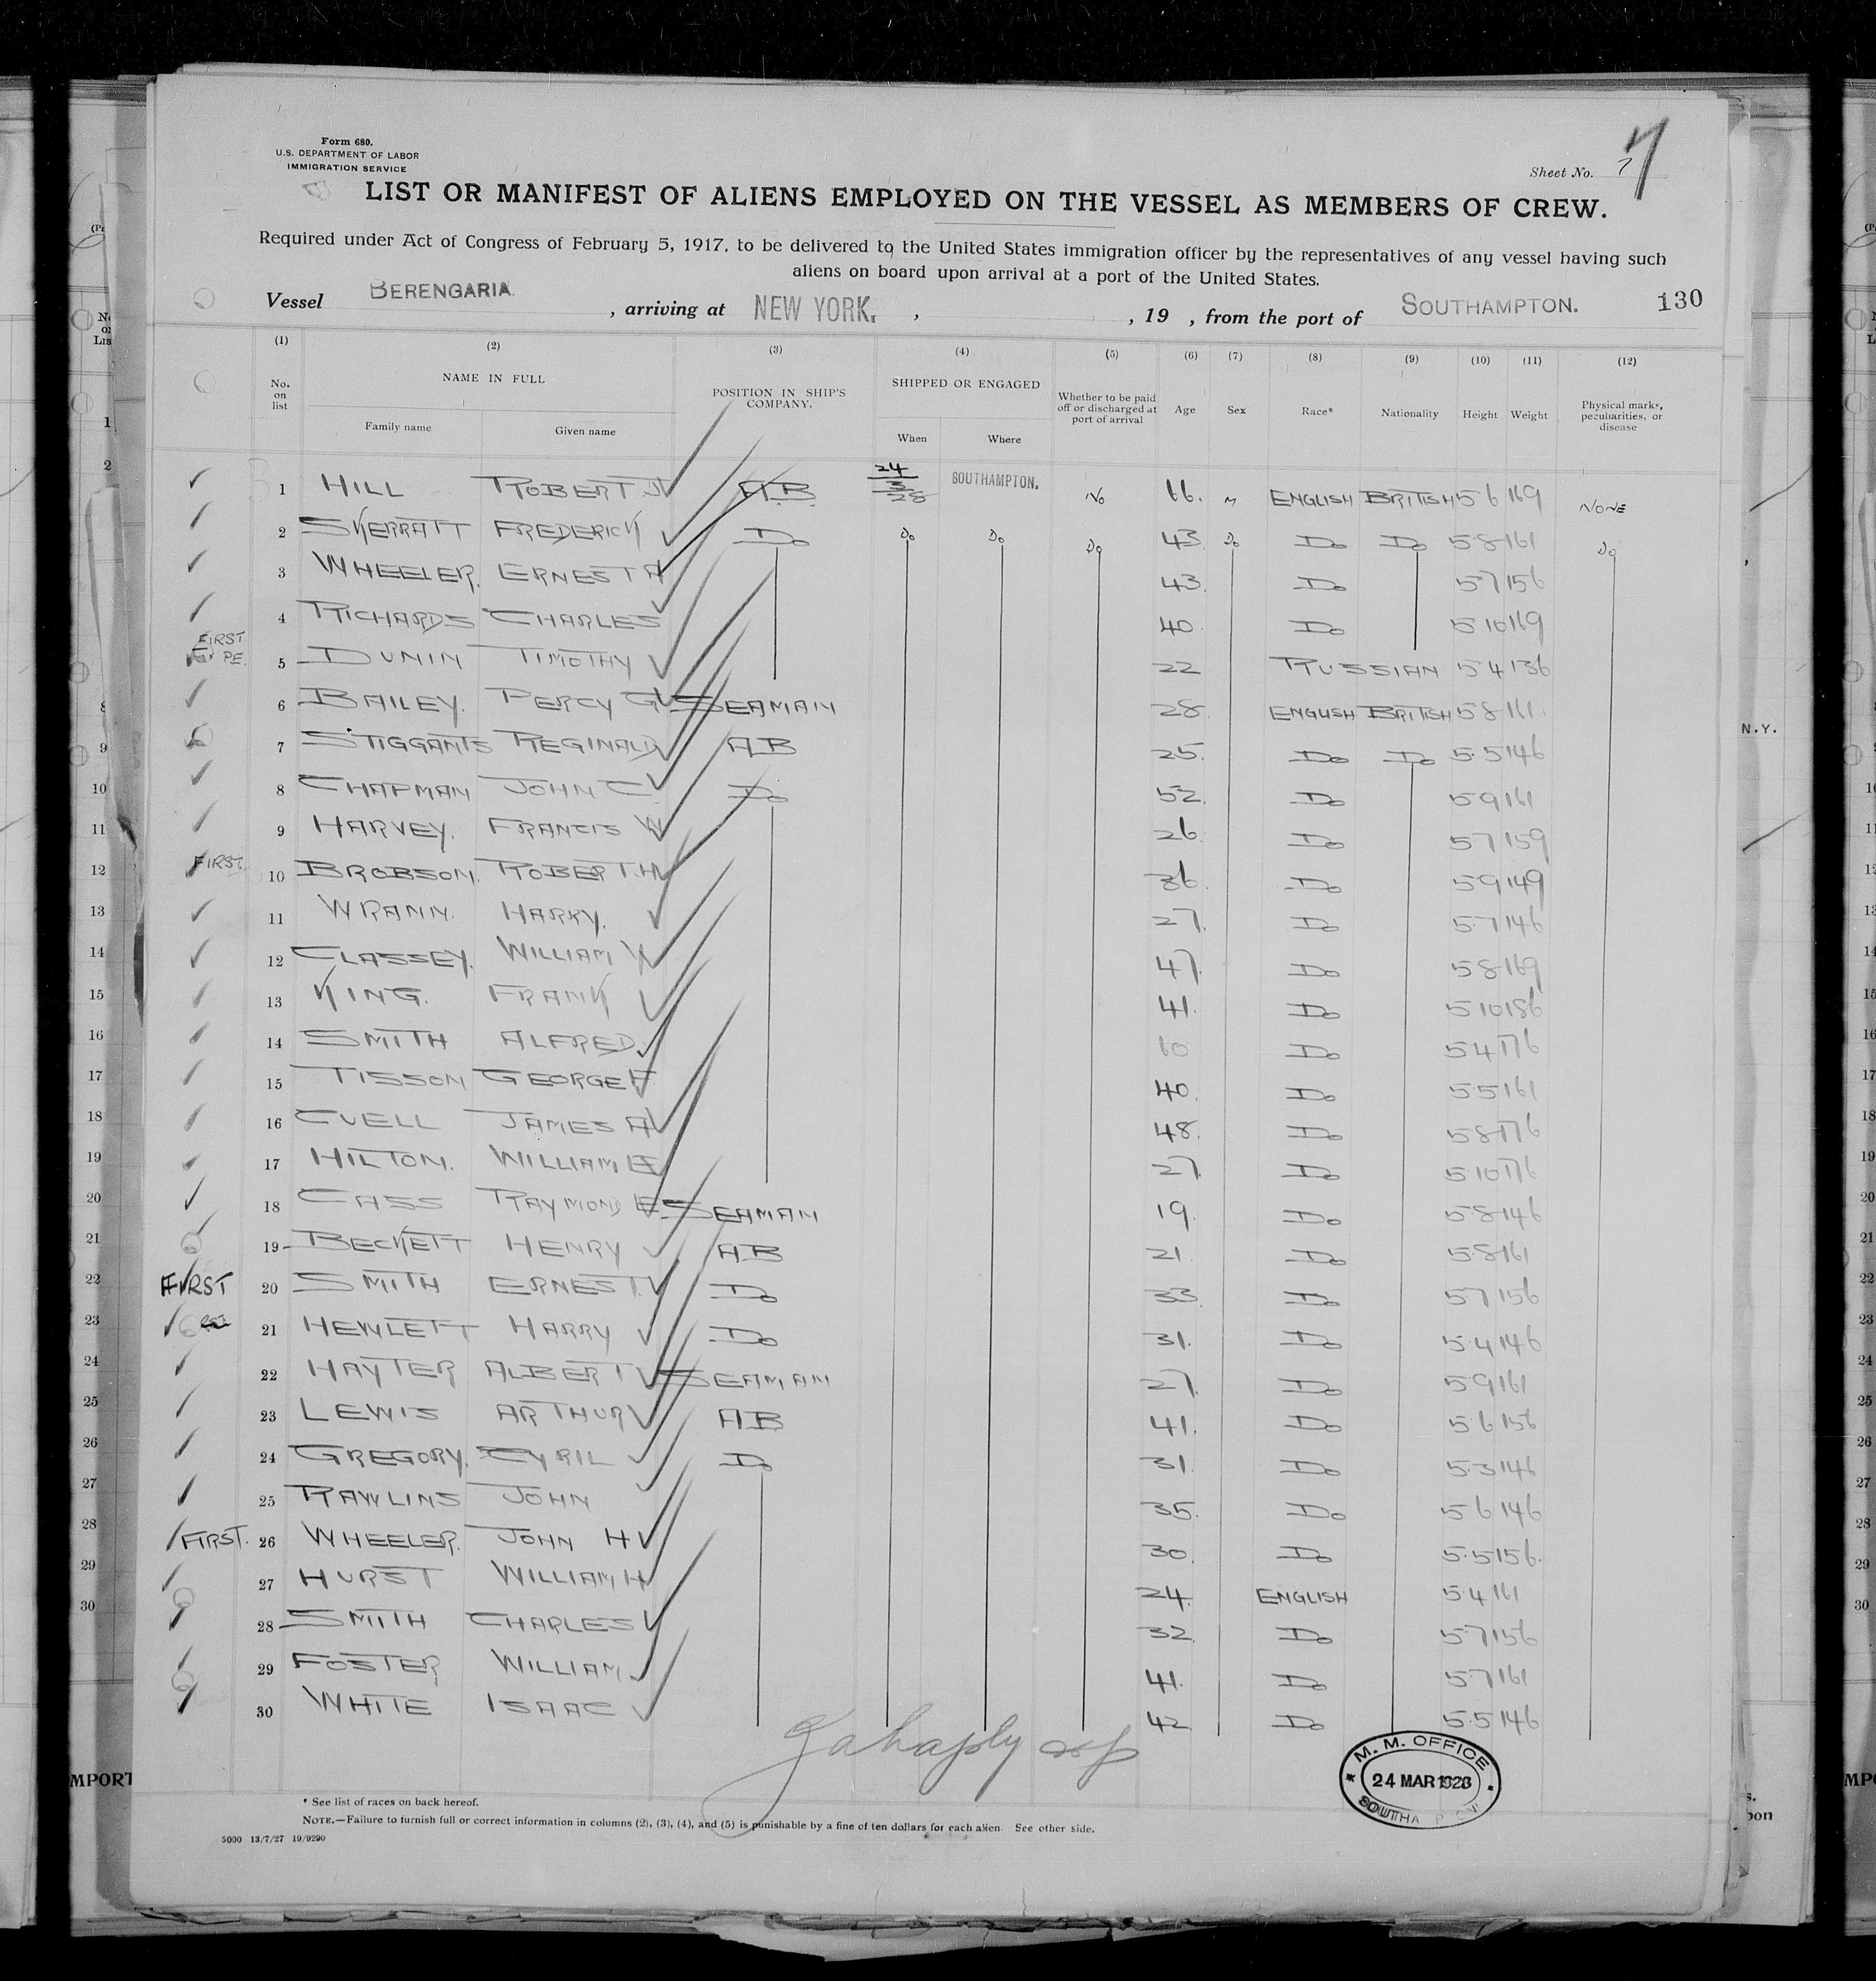 Form 680.
U.S. DEPARTMENT OF LABOR
IMMIGRATION SERVICE
Sheet No. 7
7
LIST OR MANIFEST OF ALIENS EMPLOYED ON THE VESSEL AS MEMBERS OF CREW.
Required under Act of Congress of February 5, 1917, to be delivered to the United States immigration officer by the representatives of any vessel having such
aliens on board upon arrival at a port of the United States.
Vessel BERENGARIA , arriving at NEW YORK. , , 19 , from the port of SOUTHAMPTON. 130
(1) (2) (3) (4) (5) (6) (7) (8) (9) (10) (11) (12)
No. on list NAME IN FULL Family name Given name POSITION IN SHIP'S COMPANY. SHIPPED OR ENGAGED When Where Whether to be paid off or discharged at port of arrival Age Sex Race* Nationality Height Weight Physical marks, peculiarities, or disease
1 HILL ROBERT J A.B. 24/3/28 SOUTHAMPTON. No 66. M ENGLISH BRITISH 5 6 169 NONE
2 SKERRATT FREDERICK Do Do Do Do 43. Do Do Do 5 8 161 Do
3 WHEELER. ERNEST A 43. Do 5 7 156
4 RICHARDS CHARLES 40. Do 5 10 169
FIRST PE. 5 DUNIN TIMOTHY 22 RUSSIAN 5 4 136
6 BAILEY. PERCY G SEAMAN 28. ENGLISH BRITISH 5 8 161.
7 STIGGANTS REGINALD AB 25. Do Do 5.5 146
8 CHAPMAN JOHN C. Do 52. Do 5 9 161
9 HARVEY. FRANCIS W 26. Do 5 7 159
FIRST. 10 BROBSON. ROBERT.H 36. Do 5 9 149
11 WRANN. HARRY. 27. Do 5.7 146
12 CLASSEY. WILLIAM W 47. Do 5 8 169
13 KING. FRANK 41. Do 5.10 186
14 SMITH ALFRED. 60 Do 5 4 176
15 TISSON GEORGE F. 40. Do 5.5 161
16 CUELL JAMES A 48. Do 5 8 176
17 HILTON. WILLIAM E 27. Do 5 10 176
18 CASS RAYMOND E SEAMAN 19. Do 5.8 146
19 BECKETT HENRY AB 21. Do 5.8 161
FIRST 20 SMITH ERNEST. Do 33. Do 5.7 156
21 HEWLETT HARRY Do 31. Do 5.4 146
22 HAYTER ALBERT SEAMAN 27. Do 5.9 161
23 LEWIS ARTHUR AB 41. Do 5.6 156
24 GREGORY. CYRIL Do 31. Do 5.3 146
25 RAWLINS JOHN 35. Do 5 6 146
FIRST. 26 WHEELER. JOHN H 30. Do 5.5 156.
27 HURST WILLIAM H 24. ENGLISH 5.4 161
28 SMITH CHARLES 32. Do 5.7 156
29 FOSTER WILLIAM. 41. Do 5.7 161
30 WHITE ISAAC 42. Do 5.5 146
M. M. OFFICE
24 MAR 1928
* See list of races on back hereof.
NOTE.—Failure to furnish full or correct information in columns (2), (3), (4), and (5) is punishable by a fine of ten dollars for each alien. See other side.
5000 13/7/27 19/9290
N.Y.